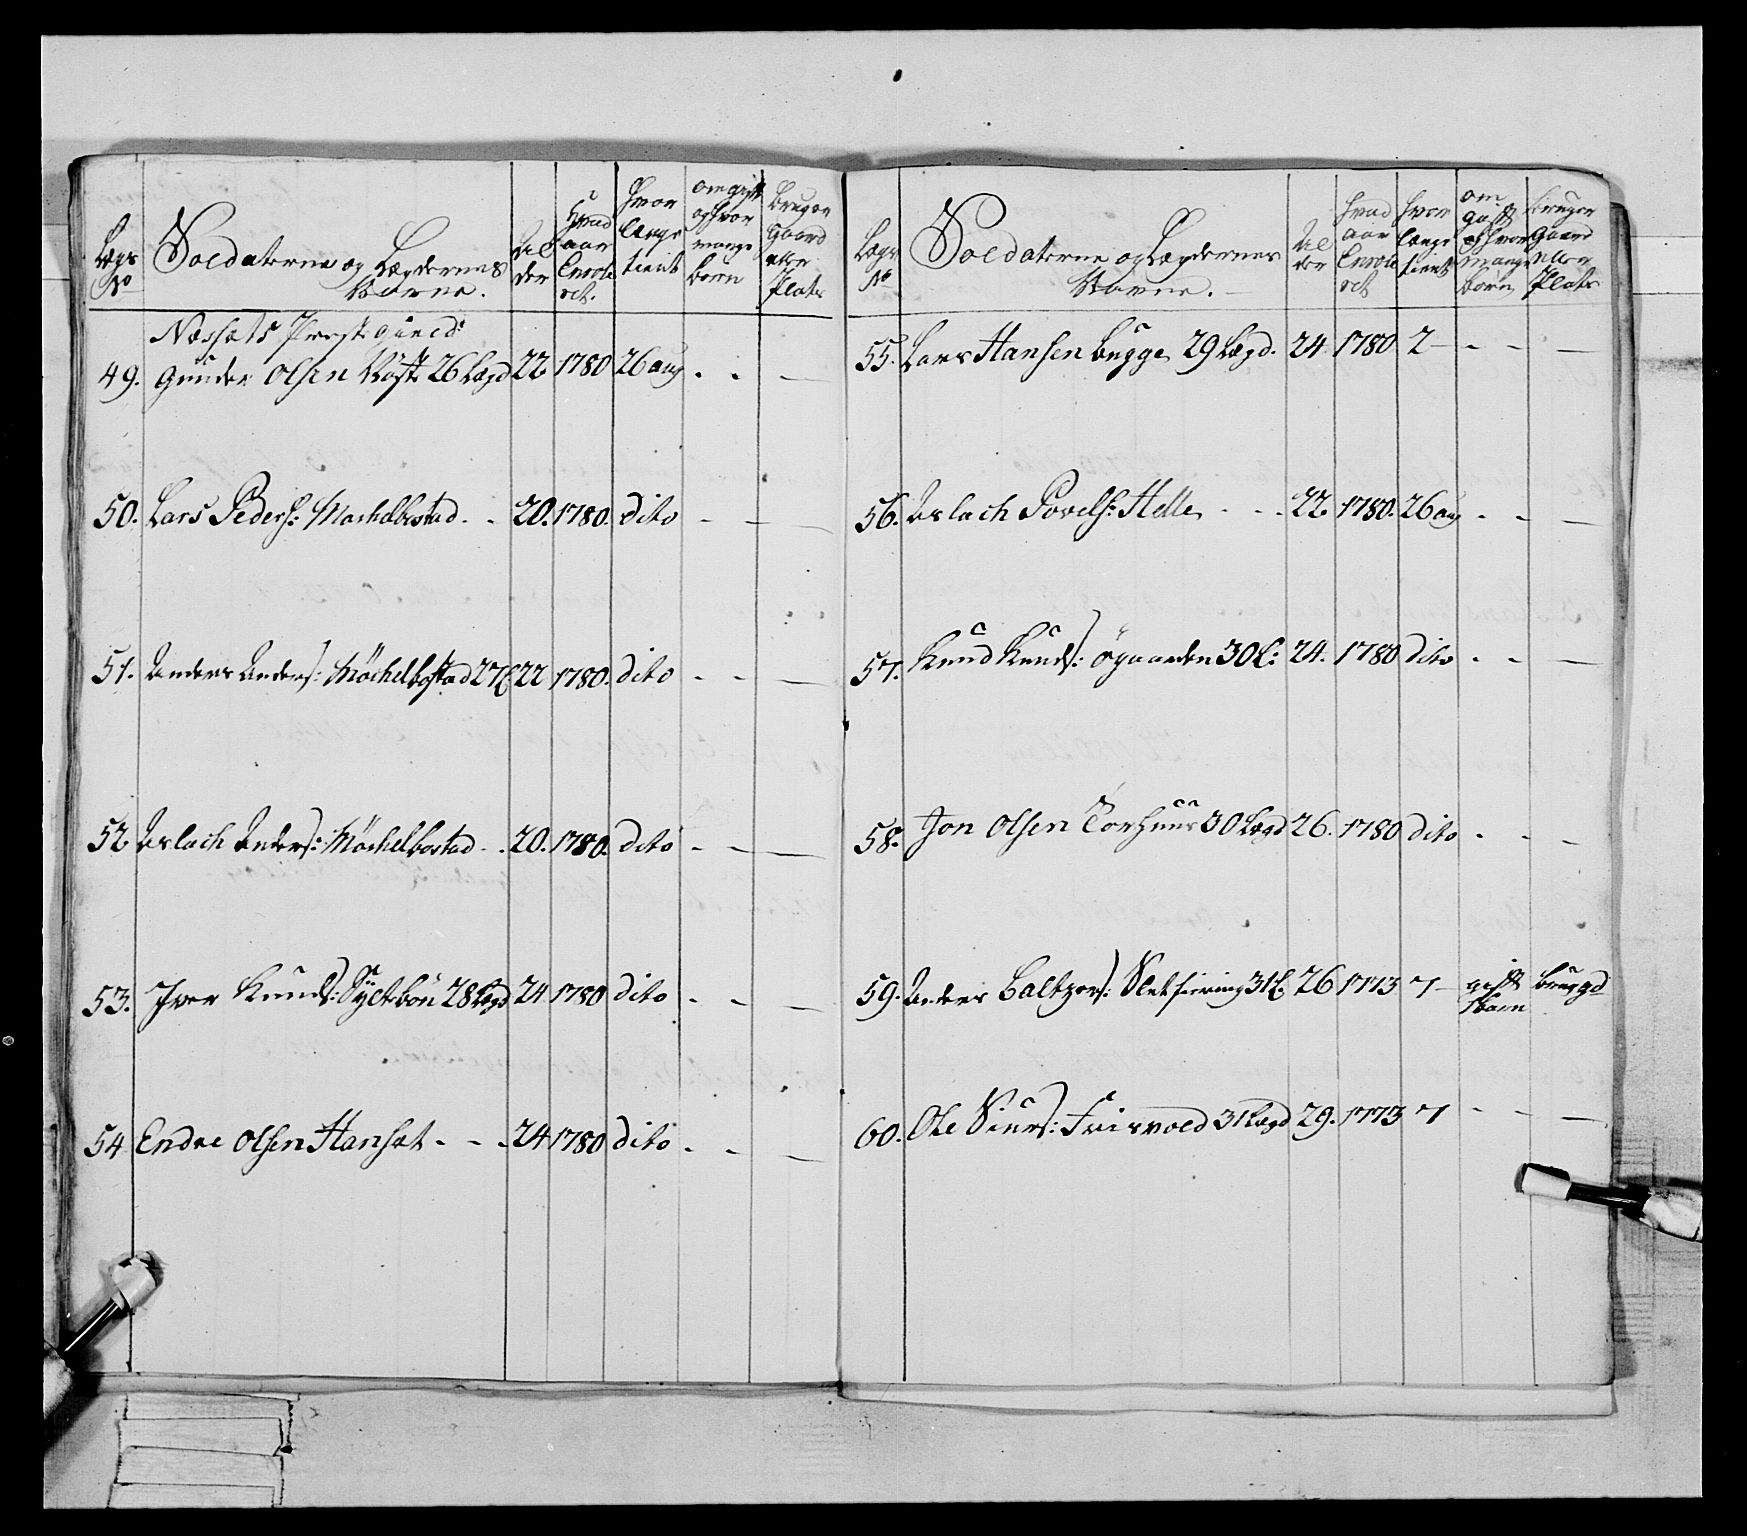 Lægs No
Soldaterne og Lægdernes Navne.
Al der
Hvad aar Enrole ret.
hvor længe tient
om gift og hvor mange børn
bruger gaard eller Plats
Næssets Præstegield:
49. Gunder Olsen 26 Lægd 22 1780 26 aug . . —
50. Lars Peders: Mochelbostad . . 20. 1780. dito - — —
51. Anders Anders: Möchelbostad 27 L 22 1780. dito - - —
52 Aslach Anders: Möchelbostad - . 20. 1780. dito - — —
53. Iver Knuds: Syltebön 28 Lægd 24 1780 dito . - —
54 Endre Olsen Hansæt - - . 24 1780 dito . - —
Lægs No
Soldaterne og Lægdernes Navne.
Al der
hvad aar Enrole ret
hvor længe tient
om gift og hvor mange børn
bruger Gaard eller Plats
55. Lars Hansen bugge 29 Lægd. 24 1780 2 — - - —
56. Aslach Povels: Helle - - . 22 1780. 26 aug . - —
57. Knud Knuds: Øgaarden 30 L: 24. 1780 dito . - —
58. Jon Olsen Torhuus 30 Lægd 26. 1780 dito . . —
59. Anders Baltzers: 31 L. 26 1773 7 — gift brug gd
1 barn
60. Ole Siurs: Frisvold 31 Lægd 29. 1773 7 - - —